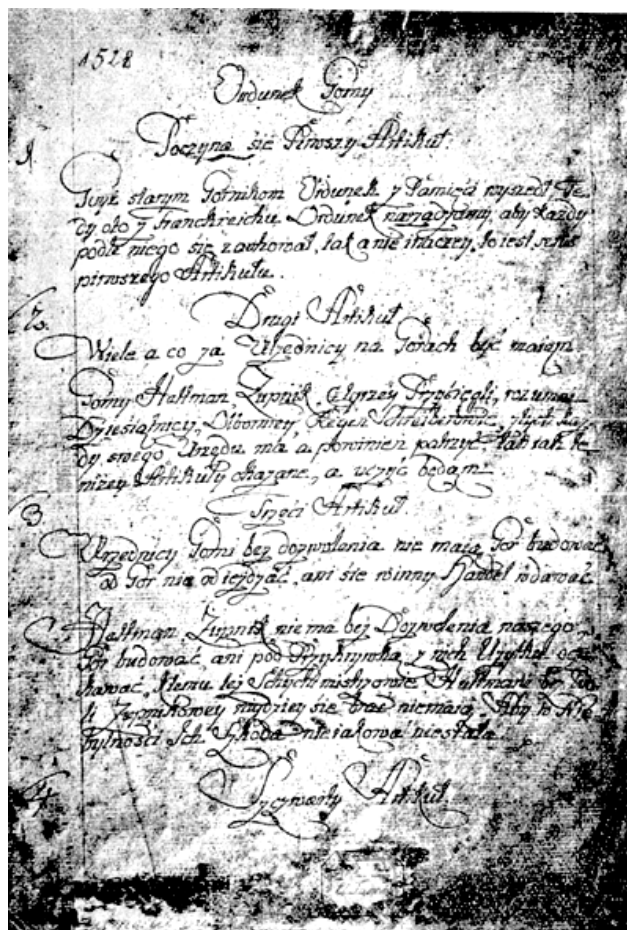 1528
Ordunek Gorny
Poczyna się Pirwszy Artikuł.
1.
Gdyż starym Gornikom Ordunek z Pamięci wyszedł, Te-
dy oto z Franckreichu Ordunek narządzamy, aby każdy
podle niego się zachował, tak a nie inaczey, to iest sens
pirwszego Artikułu.
2.
Drugi Artikuł
Wiele a co za Urzędnicy na Gorach być maiom
Gorny Hattman Zupnik, Czterzey Przysięgli,
Dziesiątnicy,
dy swego Urzędu ma, a powinien patrzyć. Tak iak te-
niżey Artikuły okazane, a uczyć będam
3
Trzeci Artikuł.
Urzędnicy Gorni bez dozwolenia nie maią Gor budować
od Gor nia odieżdzać, ani się winny Handel wdawać
Hattman Zupnik nie ma bez Dozwolenia naszego
Gor budować, ani pod Przykrywką z nich Użytku ocze-
kawać, Ktemu tez Schychtmistrzowie Hattmani
Zupnikowey nigdziey się brać niemaią, Aby to Nie-
bytności Ich Skoda nieiakowa niestała.
4.
Czwarty Artikuł.